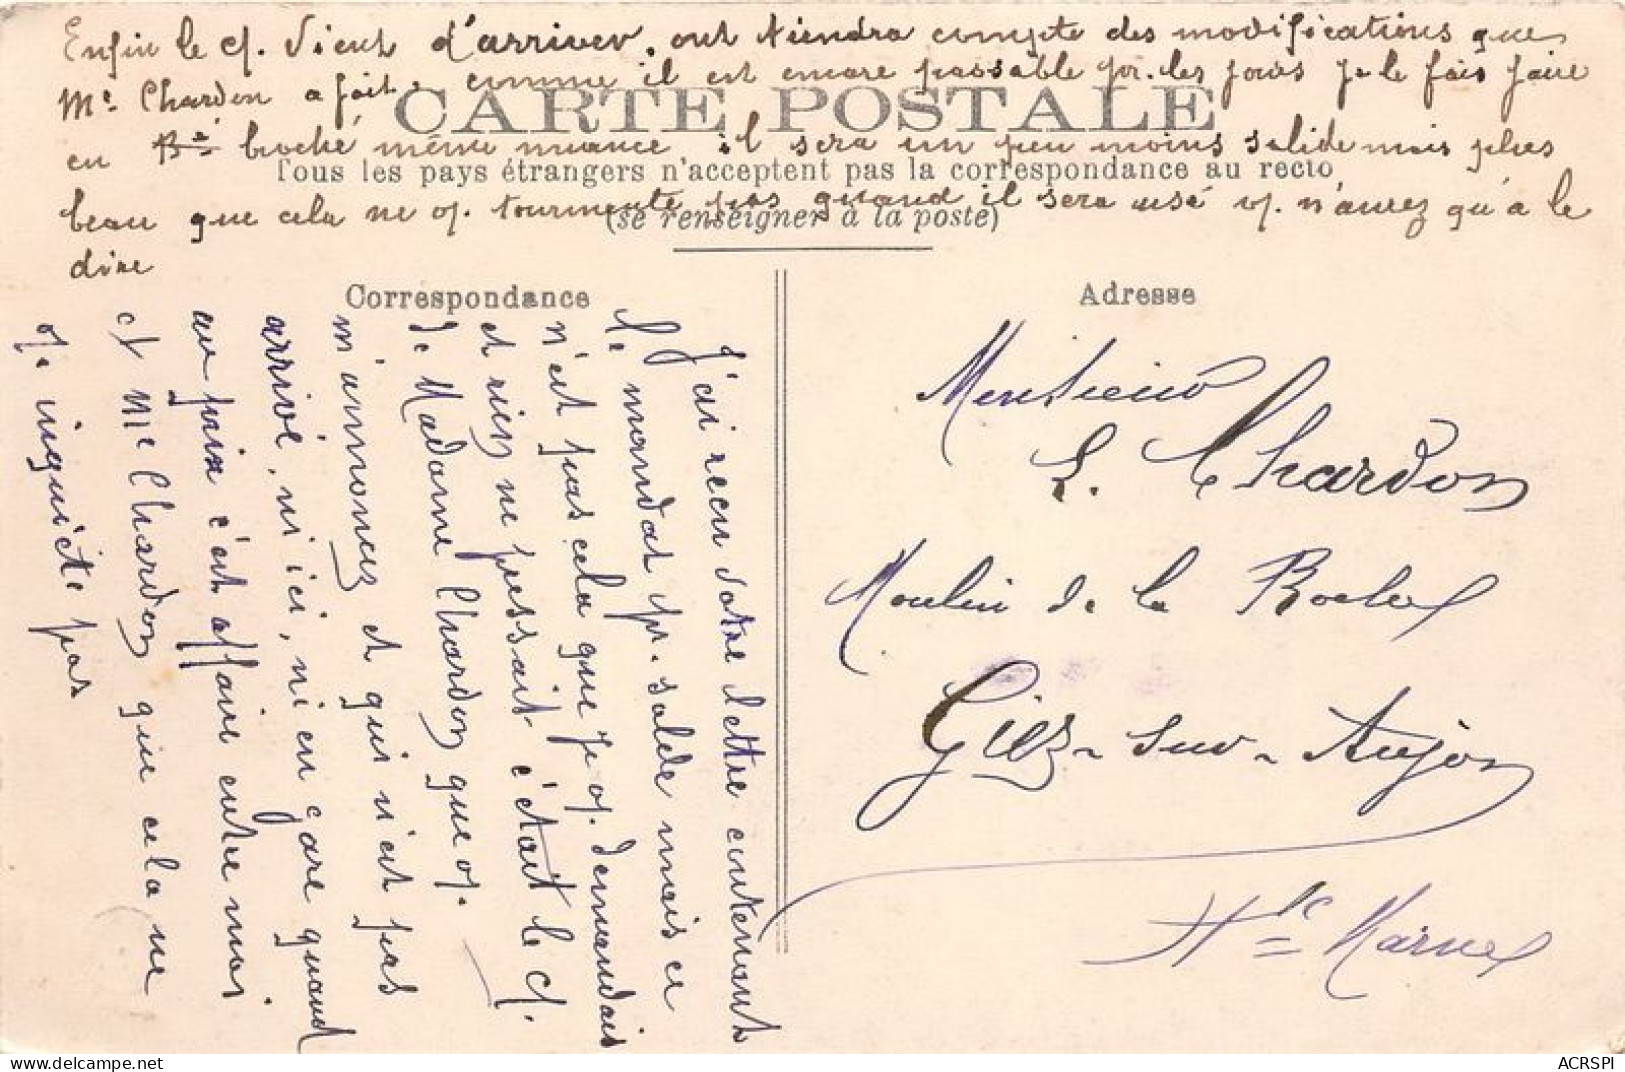 Enfin le cf. vient d'arriver, ont tiendra compte des modifications que
Me. Chardon a fait, comme il est encore passable pr. les jours je le fais faire
CARTE POSTALE
en Bé broché même nuance il sera un peu moins solide mais plus
Tous les pays étrangers n'acceptent pas la correspondance au recto
beau que cela ne v. tourmente pas quand il sera usé v. n'aurez qu'à le
(se renseigner à la poste)
dire
Correspondance
J'ai recu votre lettre contenant
le mandat pr. solde mais ce
n'est pas cela que je v. demandais
et rien ne pressait c'était le cf.
de Madame Chardon que v.
m'annonez et qui n'est pas
arrivé, ni ici, ni en gare quant
au prix c'est affaire entre moi
et Me Chardon que cela ne
v. inquiète pas
Adresse
Monsieur
L. Chardon
Moulin de la Roche
Giez-sur-Aujon
Hte Marne
ACRSPI